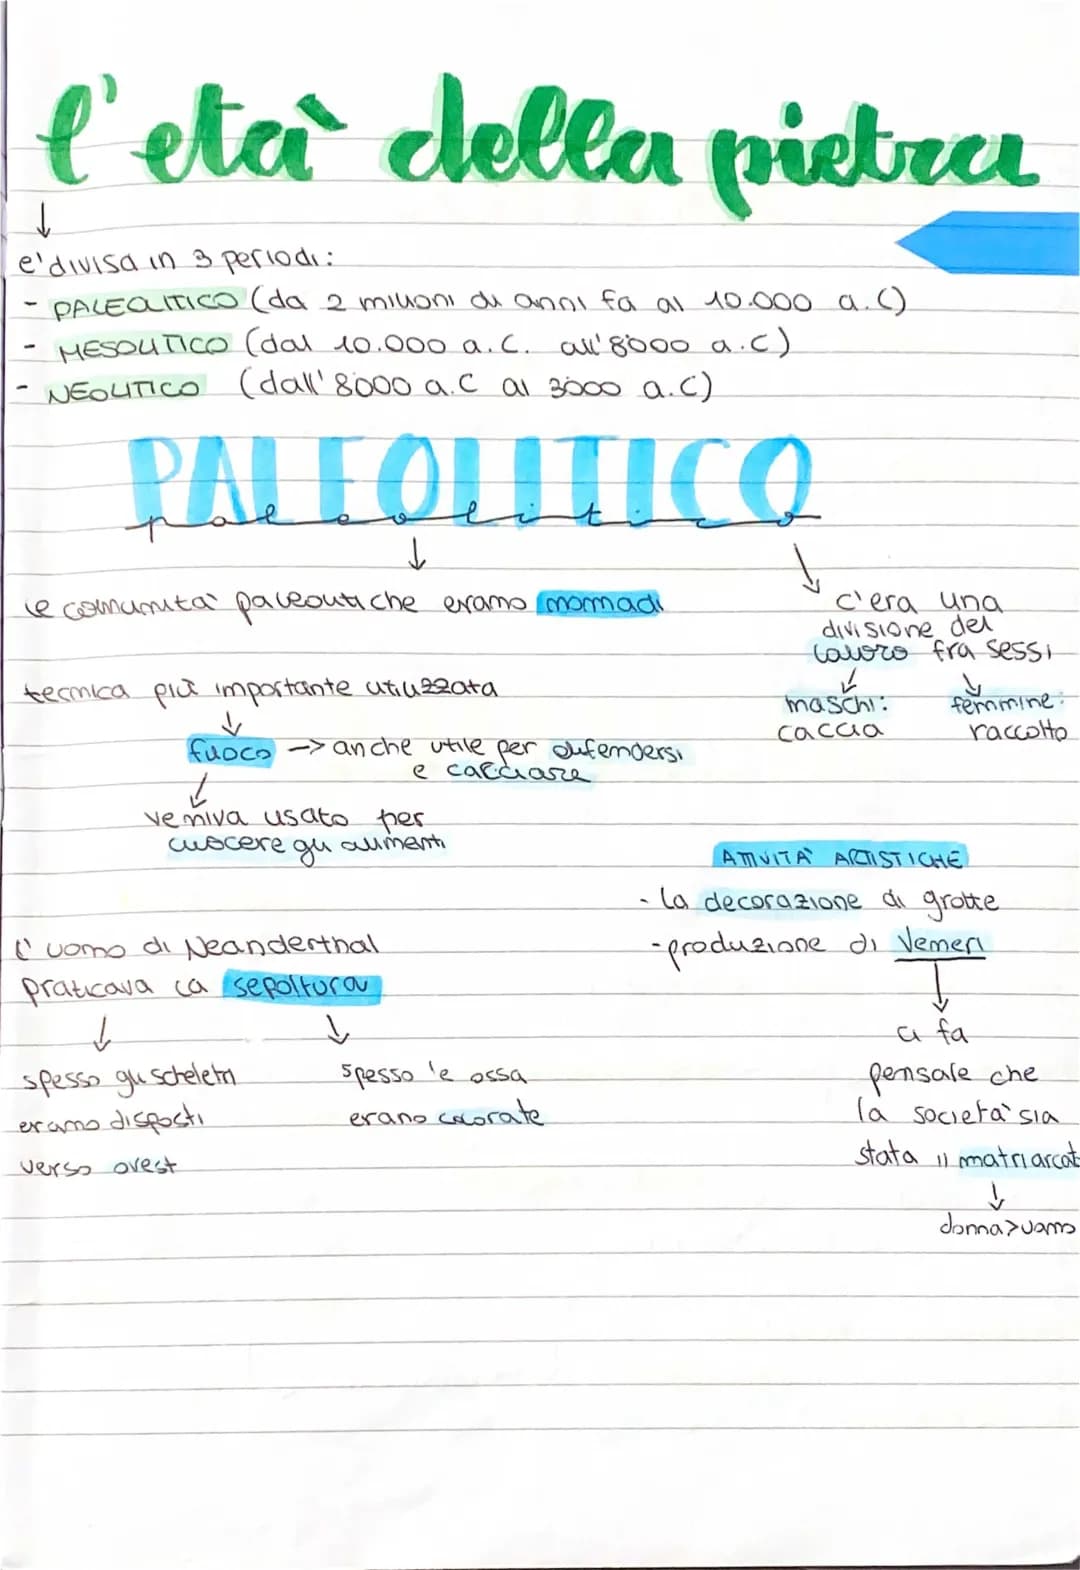 l'età della pietra
e' divisa in 3 periodi:
- PALEOLITICO (da 2 milioni di anni fa al 10.000 a.C)
- MESOLITICO (dal 10.000 a.C. all'8000 a.C)
- NEOLITICO (dall'8000 a.C al 3000 a.C)
PALEOLITICO
paleolitico
le comunità paleolitiche erano nomadi
c'era una
divisione del
lavoro fra sessi
maschi:
caccia
femmine:
raccolto
tecnica più importante utilizzata
fuoco -> anche utile per difendersi
e cacciare
veniva usato per
cuocere gli alimenti
ATTIVITÀ ARTISTICHE
- la decorazione di grotte
- produzione di Veneri
ci fa
pensare che
la società sia
stata il matriarcat
donna>uomo
l'uomo di Neanderthal
praticava la sepoltura
spesso gli scheletri
erano disposti
verso ovest
spesso le ossa
erano colorate